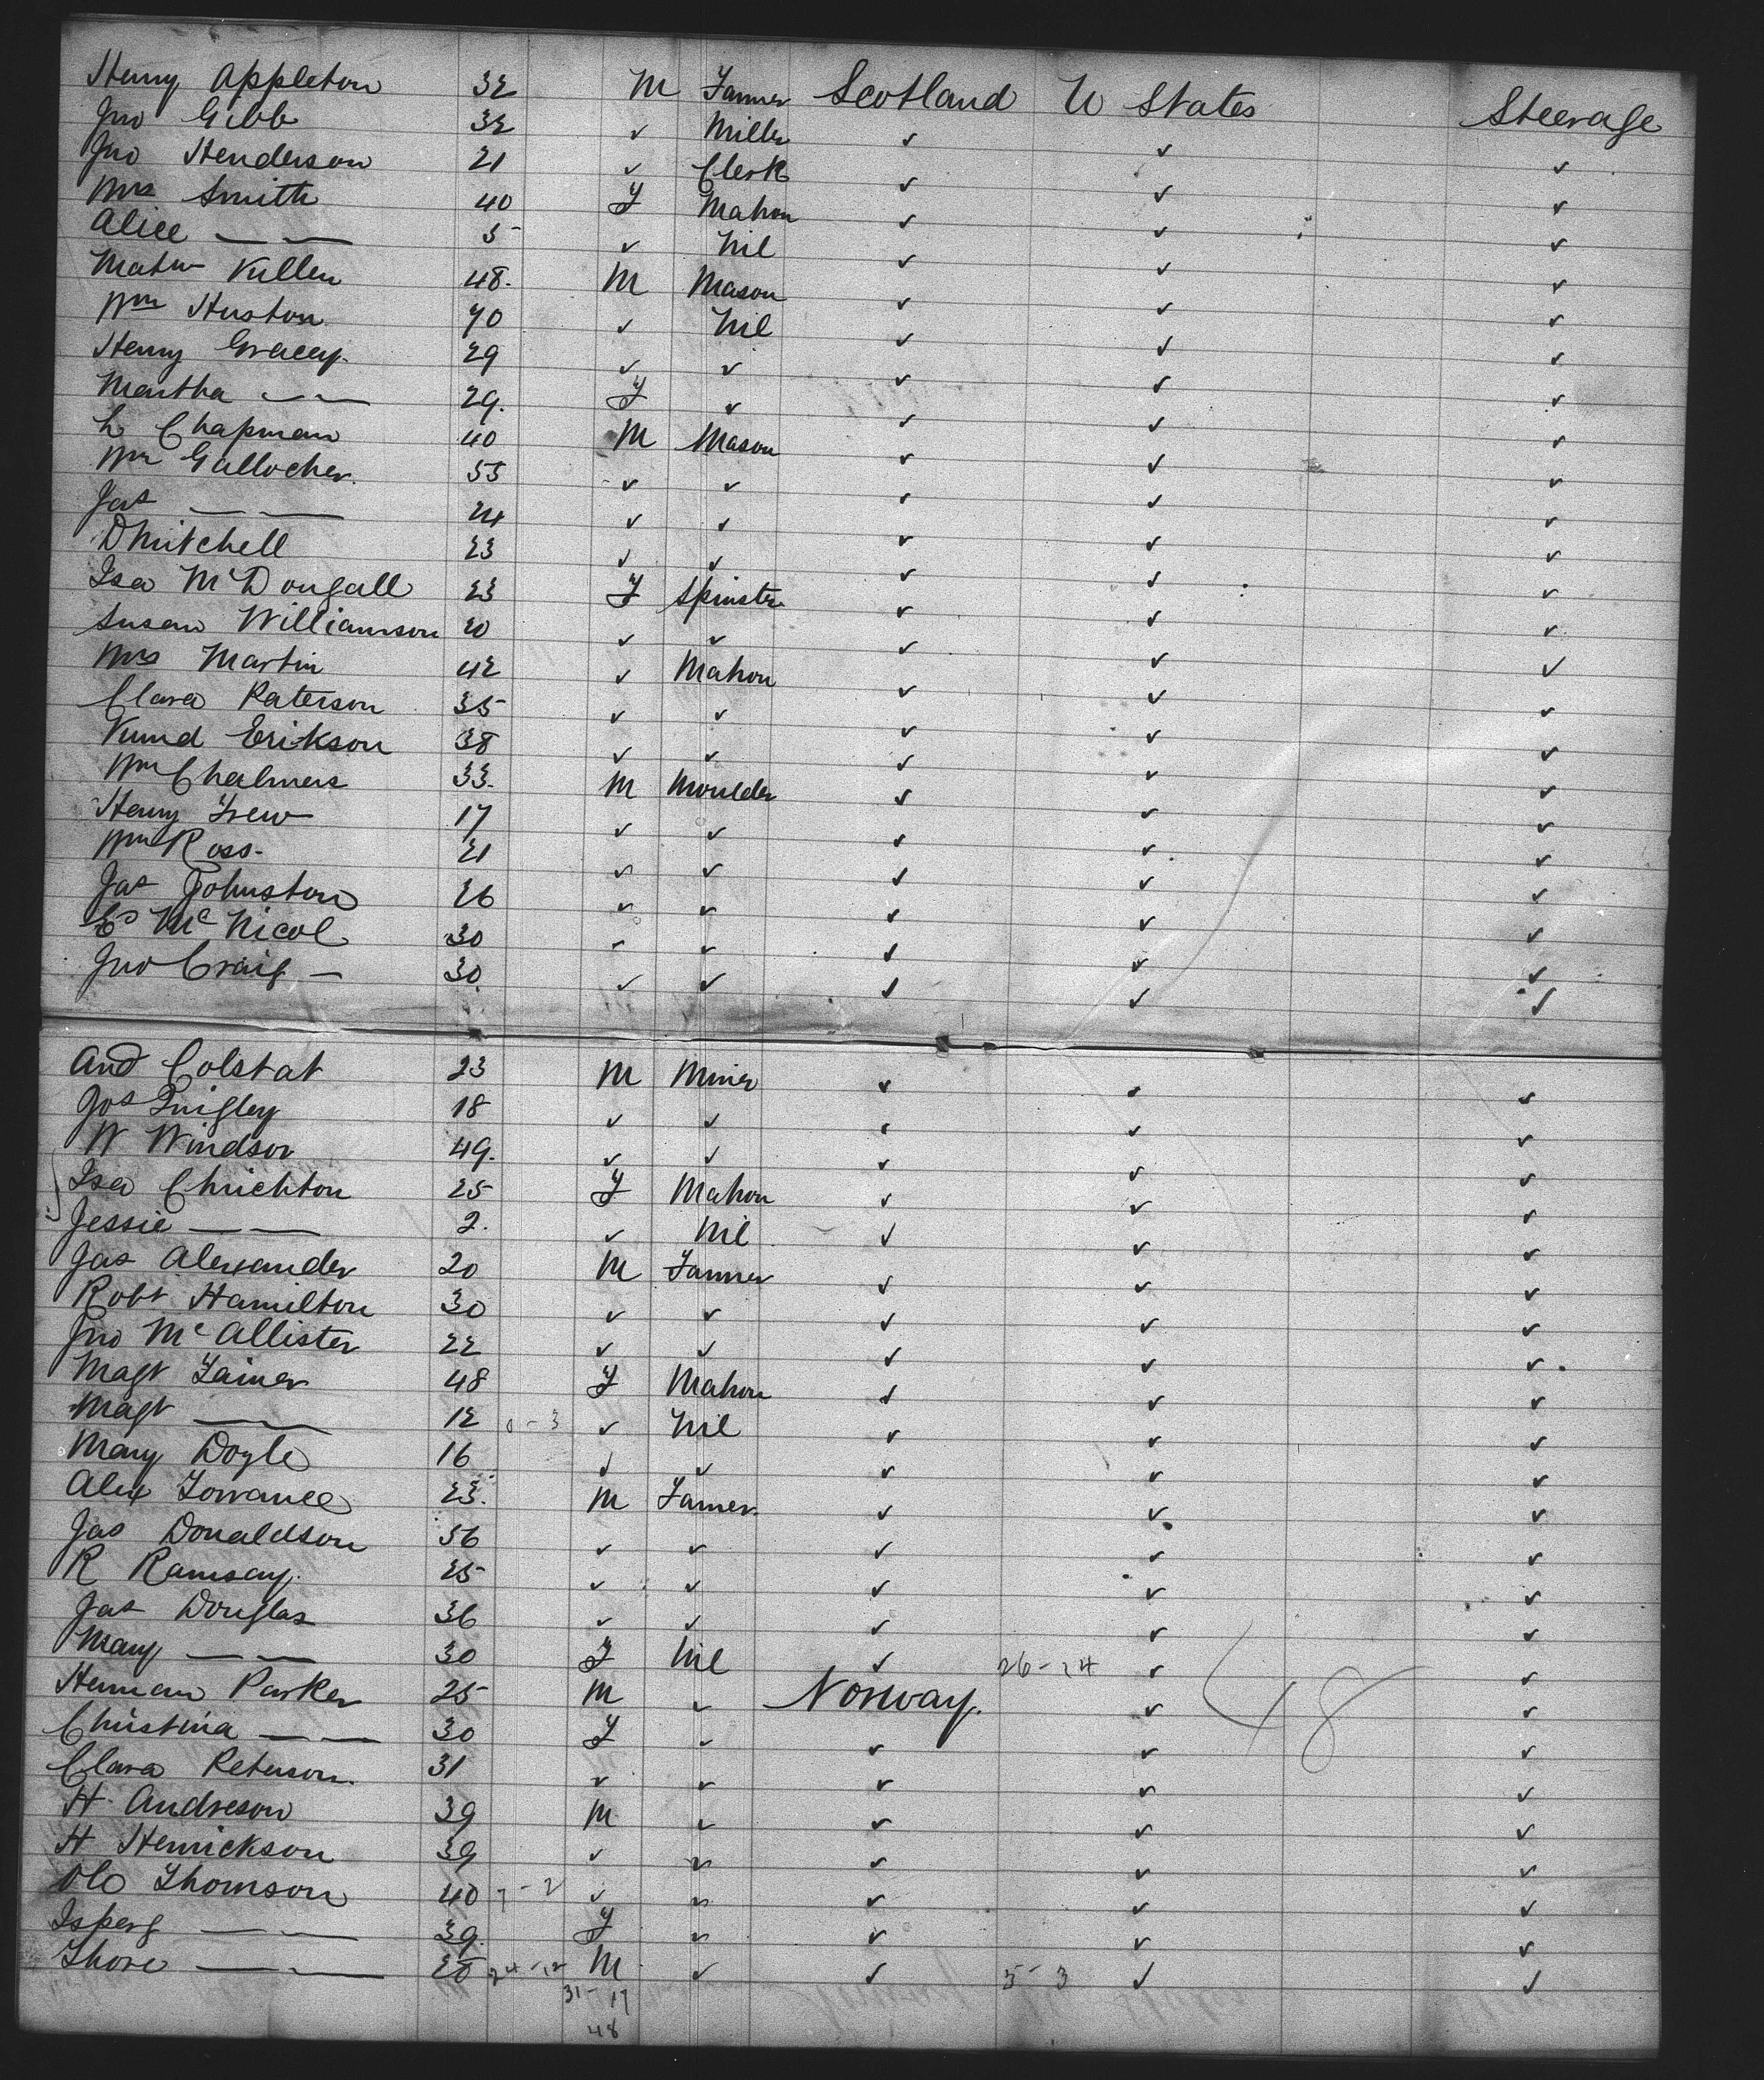 Henry Appleton 32 M Farmer Scotland U States Steerage
Jno Gibb 32 ✓ Miller ✓ ✓ ✓
Jno Henderson 21 ✓ Clerk ✓ ✓ ✓
Mrs Smith 40 F Matron ✓ ✓ ✓
Alice — — 5 ✓ Nil ✓ ✓ ✓
Matw Killen 48. M Mason ✓ ✓ ✓
Wm Huston 40 ✓ Nil ✓ ✓ ✓
Henry Gracey. 29 ✓ ✓ ✓ ✓ ✓
Martha — — 29. F ✓ ✓ ✓ ✓
L Chapman 40 M Mason ✓ ✓ ✓
Wm Gallocher. 55 ✓ ✓ ✓ ✓ ✓
Jas — — 24 ✓ ✓ ✓ ✓ ✓
D Mitchell 23 ✓ ✓ ✓ ✓ ✓
Isa McDougall 23 F Spinster ✓ ✓ ✓
Susan Williamson 20 ✓ ✓ ✓ ✓ ✓
Mrs Martin 42 ✓ Matron ✓ ✓ ✓
Clara Paterson 35 ✓ ✓ ✓ ✓ ✓
Erikson 38 ✓ ✓ ✓ ✓ ✓
Wm Chalmers 33. M Moulder ✓ ✓ ✓
Henry Frew 17 ✓ ✓ ✓ ✓ ✓
Wm Ross. 21 ✓ ✓ ✓ ✓ ✓
Jas Johnston 26 ✓ ✓ ✓ ✓ ✓
Ed McNicol 30 ✓ ✓ ✓ ✓ ✓
Jno Craig — 30. ✓ ✓ ✓ ✓ ✓
And Colstat 23 M Miner ✓ ✓ ✓
Jos Quigley 18 ✓ ✓ ✓ ✓ ✓
W Windsor 49. ✓ ✓ ✓ ✓ ✓
Isa Chrichton 25 F Matron ✓ ✓ ✓
Jessie — — 2. ✓ Nil ✓ ✓ ✓
Jas Alexander 20 M Farmer ✓ ✓ ✓
Robt Hamilton 30 ✓ ✓ ✓ ✓ ✓
Jno McAllister 22 ✓ ✓ ✓ ✓ ✓
Magt 48 F Matron ✓ ✓ ✓
Magt — — 12 0-3 ✓ Nil ✓ ✓ ✓
Mary Doyle 16 ✓ ✓ ✓ ✓ ✓
Alex Torrance 23. M Farmer. ✓ ✓ ✓
Jas Donaldson 56 ✓ ✓ ✓ ✓ ✓
R Ramsay. 25 ✓ ✓ ✓ ✓ ✓
Jas Douglas 36 ✓ ✓ ✓ ✓ ✓
Mary — — 30 F Nil ✓ 26-14 ✓ ✓
Herman Parker 25 M ✓ Norway. ✓ 48 ✓
Christina — — 30 F ✓ ✓ ✓ ✓
Clara Peterson. 31 ✓ ✓ ✓ ✓ ✓
H. Andreson 39 M ✓ ✓ ✓ ✓
H Henrickson 39 ✓ ✓ ✓ ✓ ✓
Ole Thomson 40 7-2 ✓ ✓ ✓ ✓ ✓
Isperg — — 39. F ✓ ✓ ✓ ✓
Thore — — 20 24-12 M ✓ ✓ 5-3 ✓ ✓
31-17
48